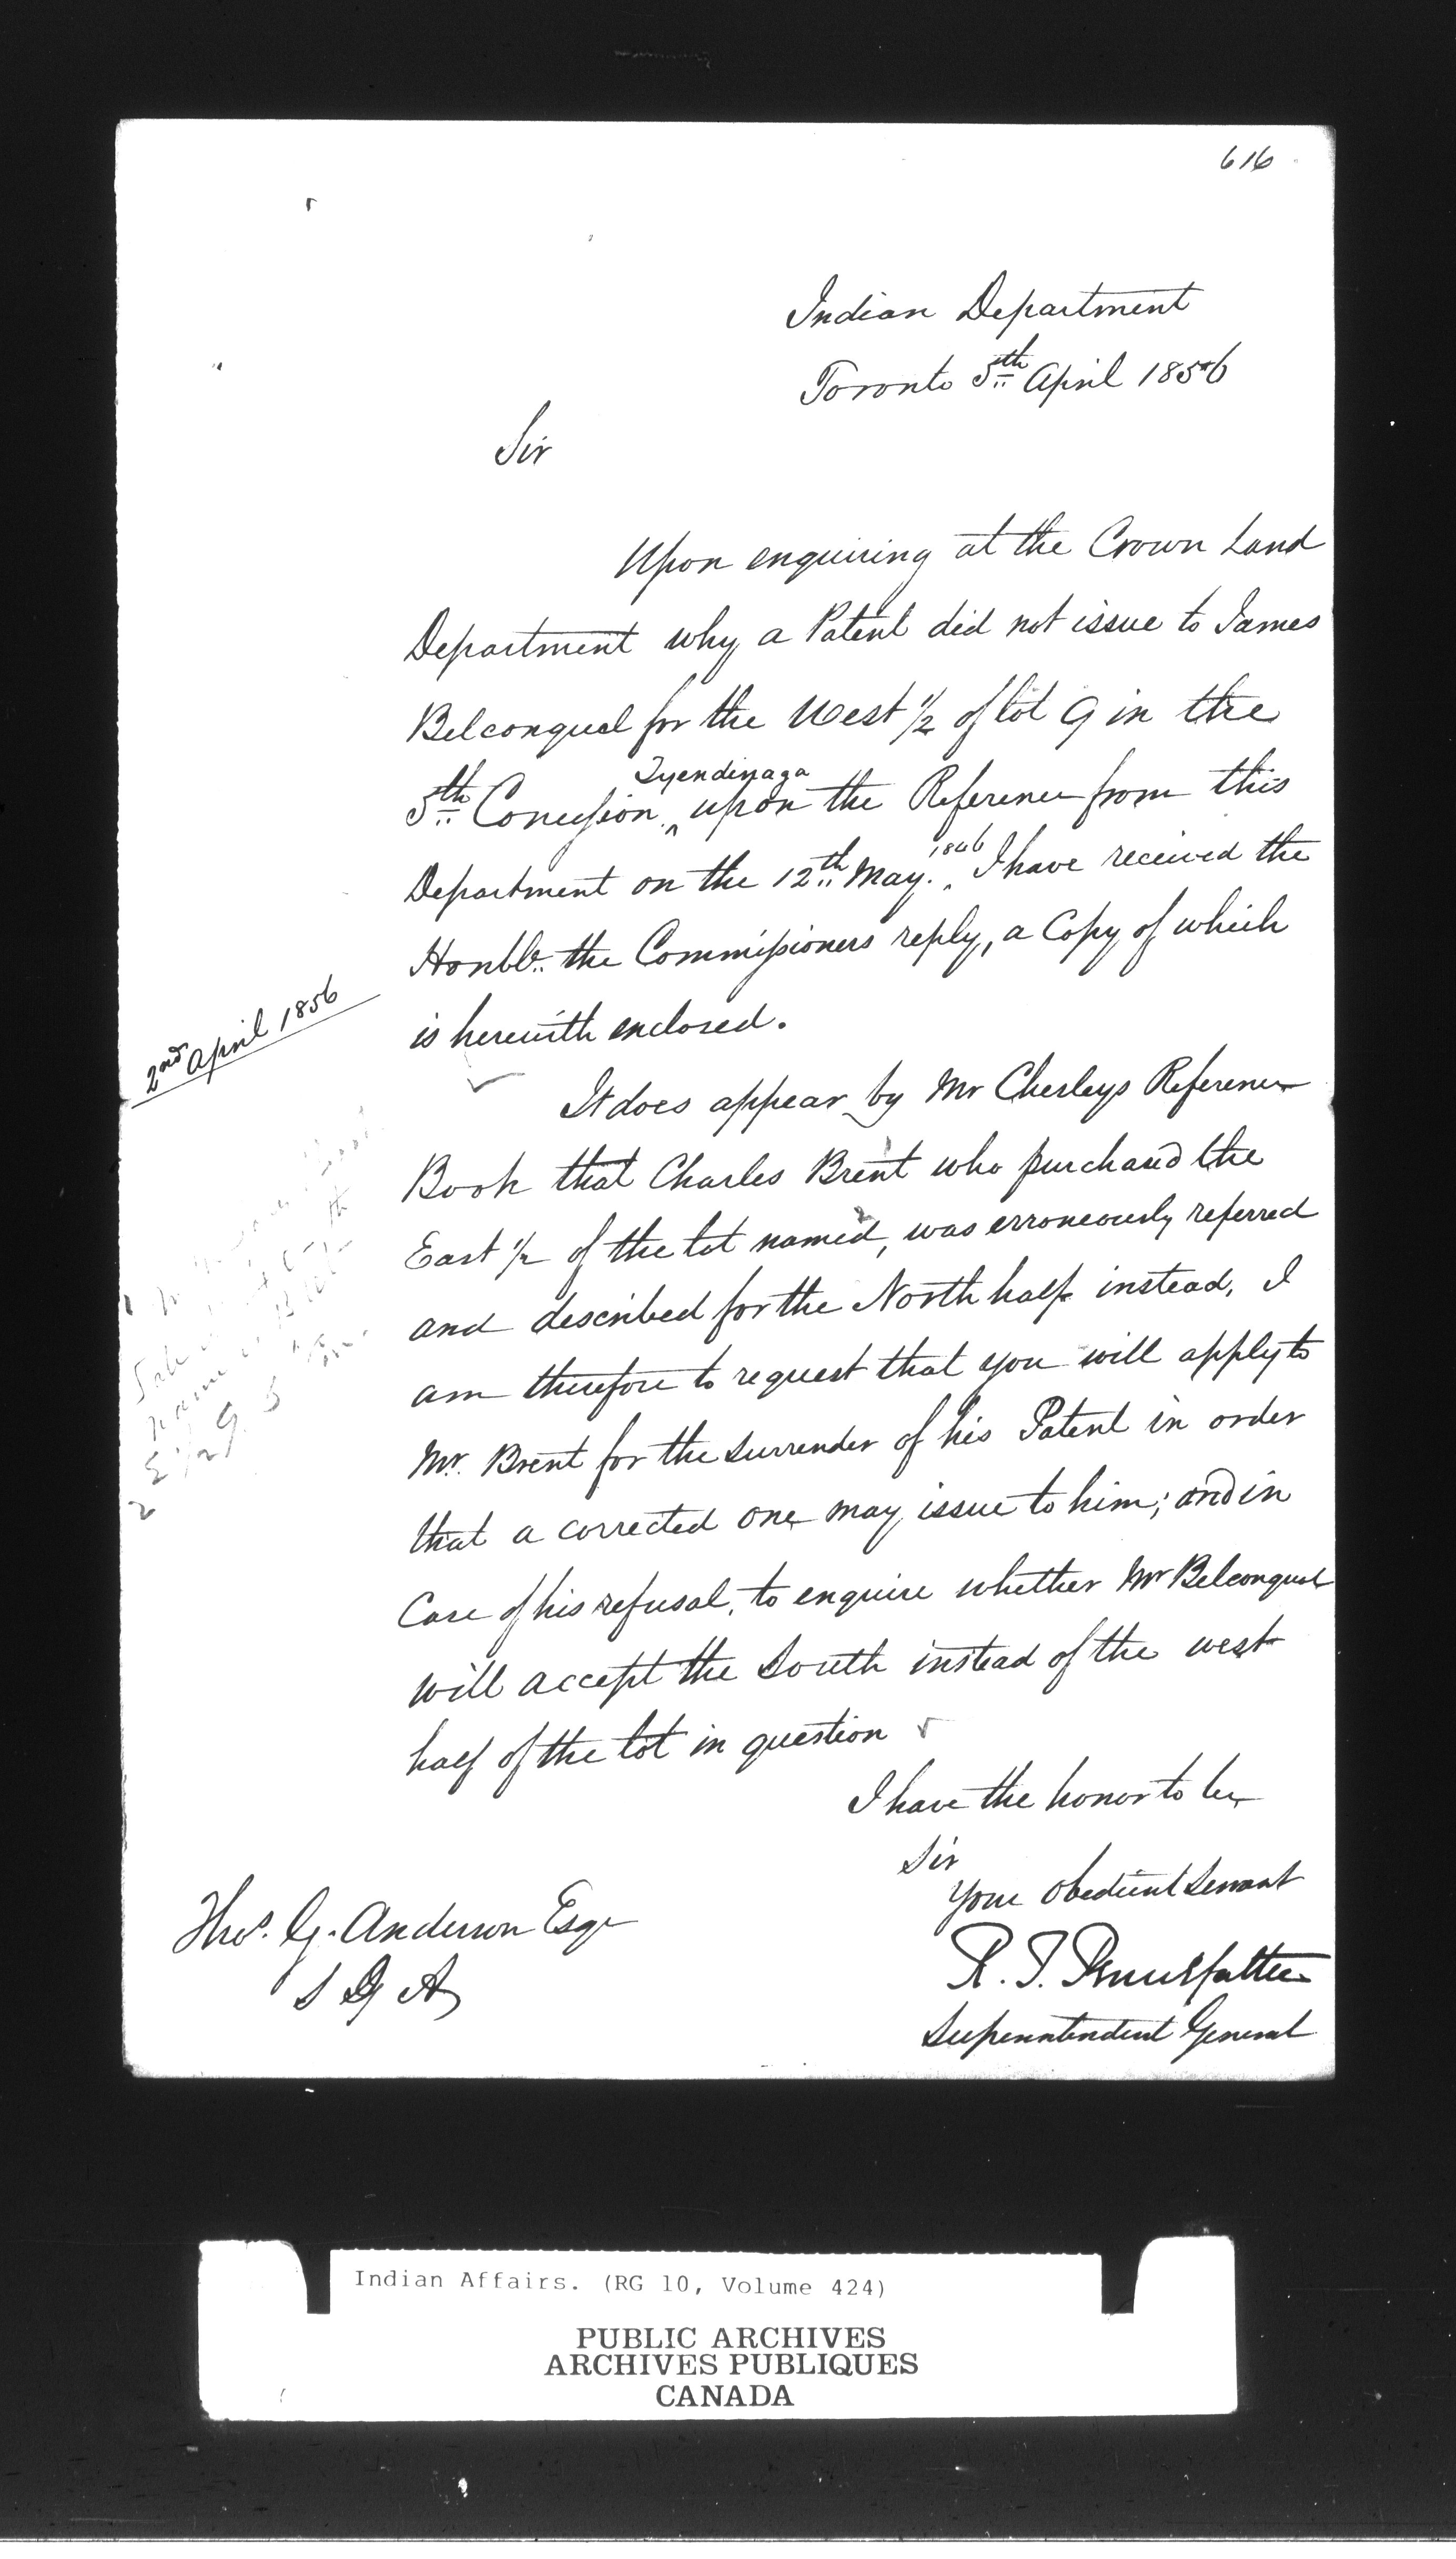 616
Indian Department
Toronto 5th April 1856
Sir
Upon enquiring at the Crown Land
Department why a Patent did not issue to James
Belconqual for the West 1/2 of lot 9 in the
5th Concession ^ Tyendinaga upon the Reference from this
Department on the 12th May. ^ 1846 I have received the
Honble. the Commissioners reply, a Copy of which
is herewith enclosed.
2nd April 1856
It does appear by Mr Chesleys Reference
Book that Charles Brent who purchased the
East 1/2 of the lot named, was erroneously referred
and described for the North half instead, I
am therefore to request that you will apply to
Mr. Brent for the surrender of his Patent in order
that a corrected one may issue to him; and in
Case of his refusal, to enquire whether Mr Belconqual
will accept the South instead of the west
half of the lot in question
I have the honor to be
Sir
Your obedient Servant
R. T. Pennefather
Superintendent General
Thos. G. Anderson Esqr
S I A
Indian Affairs. (RG 10, Volume 424)
PUBLIC ARCHIVES
ARCHIVES PUBLIQUES
CANADA